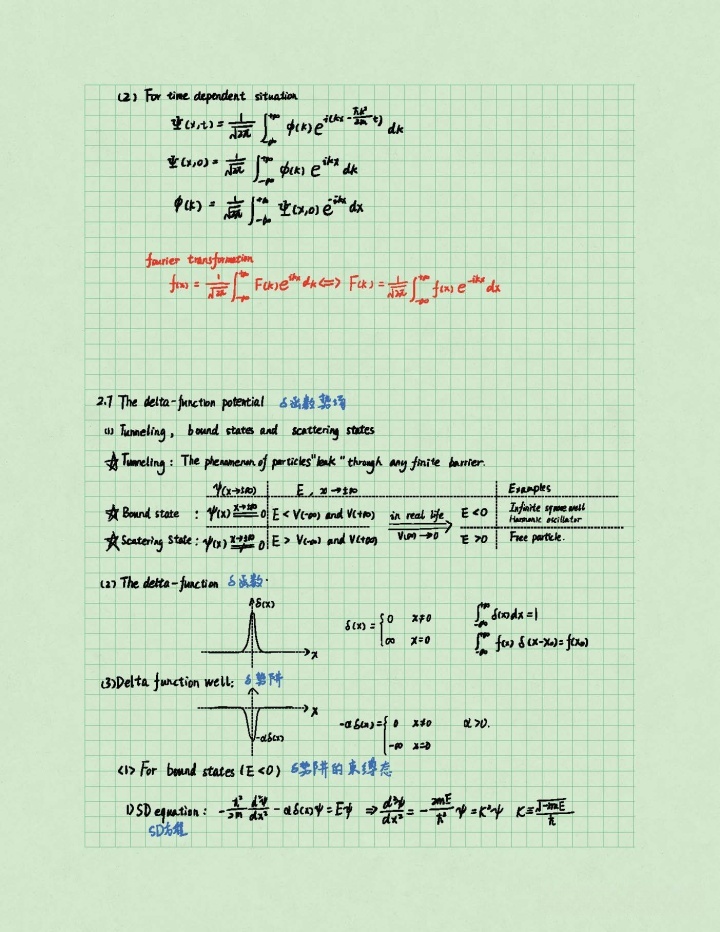 (2) For time dependent situation
Ψ(x,t) = 1/√2π ∫_{-∞}^{+∞} ϕ(k) e^{i(kx - ħk²/2m t)} dk
Ψ(x,0) = 1/√2π ∫_{-∞}^{+∞} ϕ(k) e^{ikx} dk
ϕ(k) = 1/√2π ∫_{-∞}^{+∞} Ψ(x,0) e^{-ikx} dx
fourier transformation
f(x) = 1/√2π ∫_{-∞}^{+∞} F(k) e^{ikx} dk ⇔ F(k) = 1/√2π ∫_{-∞}^{+∞} f(x) e^{-ikx} dx
2.7 The delta-function potential δ函数势场
(1) Tunneling, bound states and scattering states
☆ Tunneling: The phenomenon of particles "leak" through any finite barrier.
ψ(x→±∞) E, x→±∞ Examples
☆ Bound state : ψ(x) x→±∞ = 0 E < V(-∞) and V(+∞) in real life V(∞)→0 E<0 Infinite square well
Harmonic oscillator
☆ Scatering state: ψ(x) x→±∞ ≠ 0 E > V(-∞) and V(+∞) E>0 Free particle.
(2) The delta-function δ函数
δ(x)
x
δ(x) = { 0 x≠0
∞ x=0
∫_{-∞}^{+∞} δ(x)dx = 1
∫_{-∞}^{+∞} f(x) δ(x-x₀) = f(x₀)
(3) Delta function well: δ势阱
x
-αδ(x)
-αδ(x) = { 0 x≠0 α>0.
-∞ x=0
<1> For bound states (E<0) δ势阱的束缚态
1) SD equation: -ħ²/2m d²ψ/dx² - αδ(x)ψ = Eψ ⇒ d²ψ/dx² = -2mE/ħ² ψ = K²ψ K ≡ √-2mE/ħ
SD方程